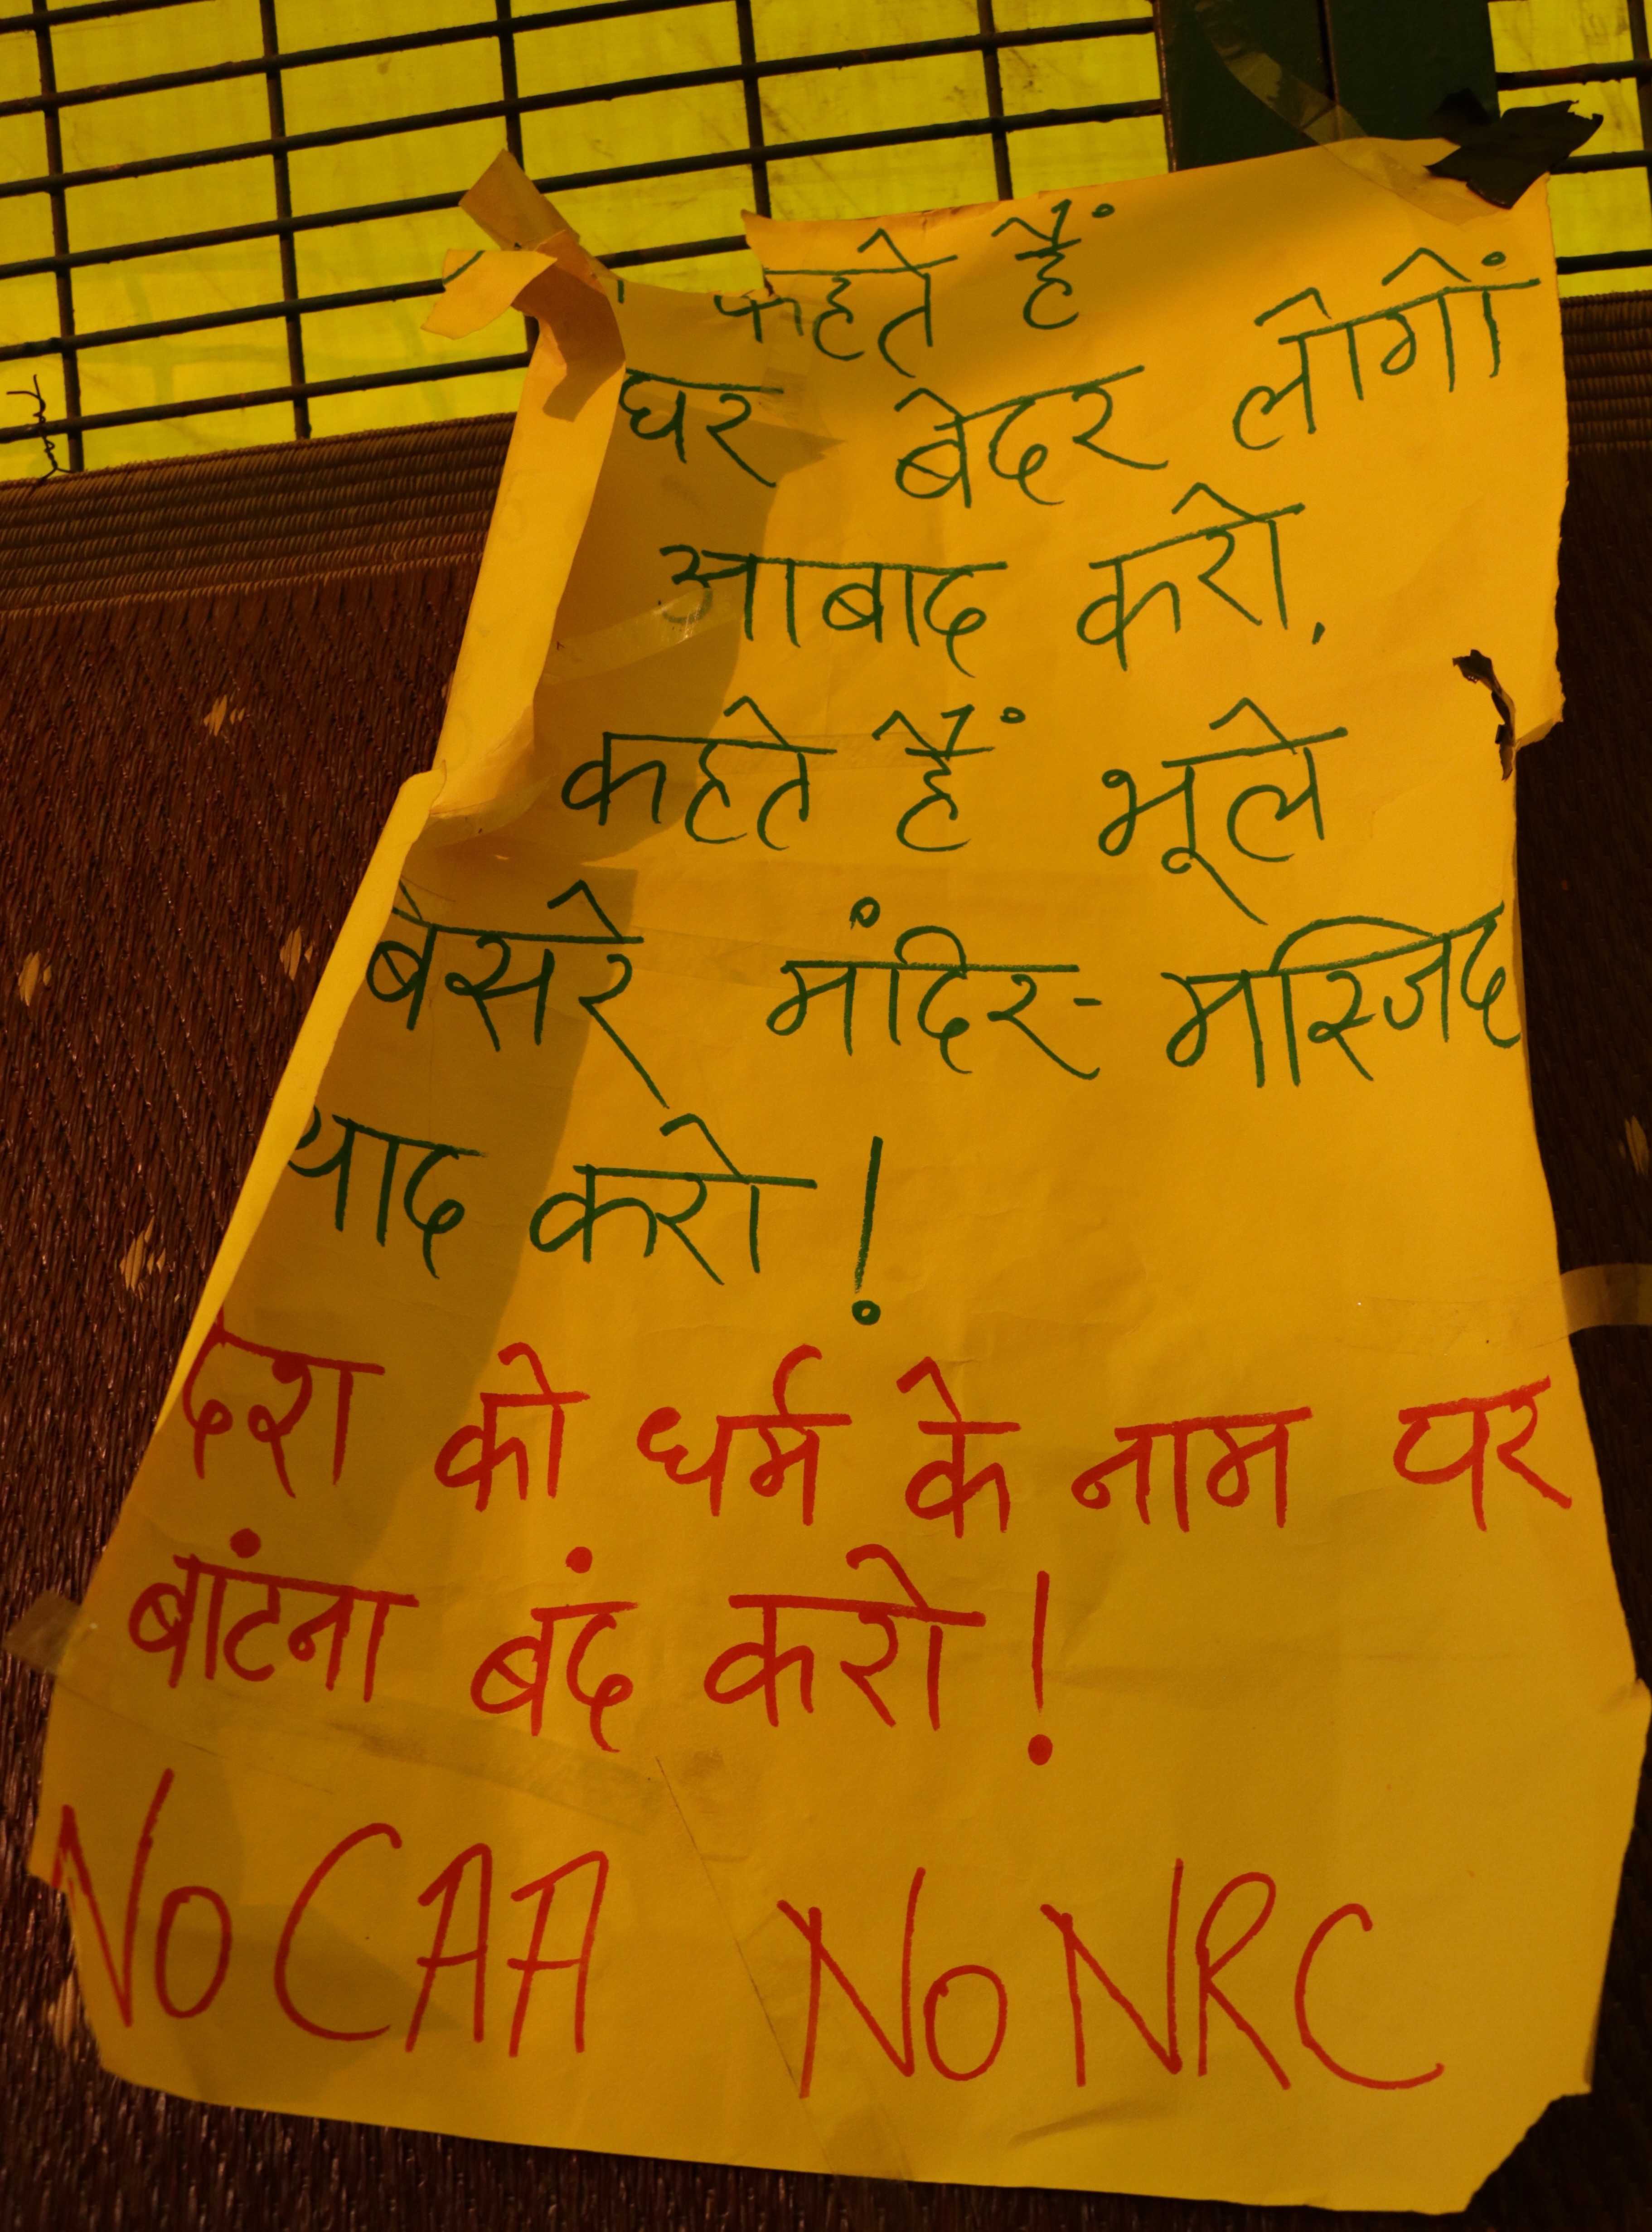 कहते हैं
घर बेदर लोगों
आबाद करो,
कहते हैं भूले
बेसरे मंदिर-मस्जिद
याद करो!
देश को धर्म के नाम पर
बांटना बंद करो!
No CAA No NRC